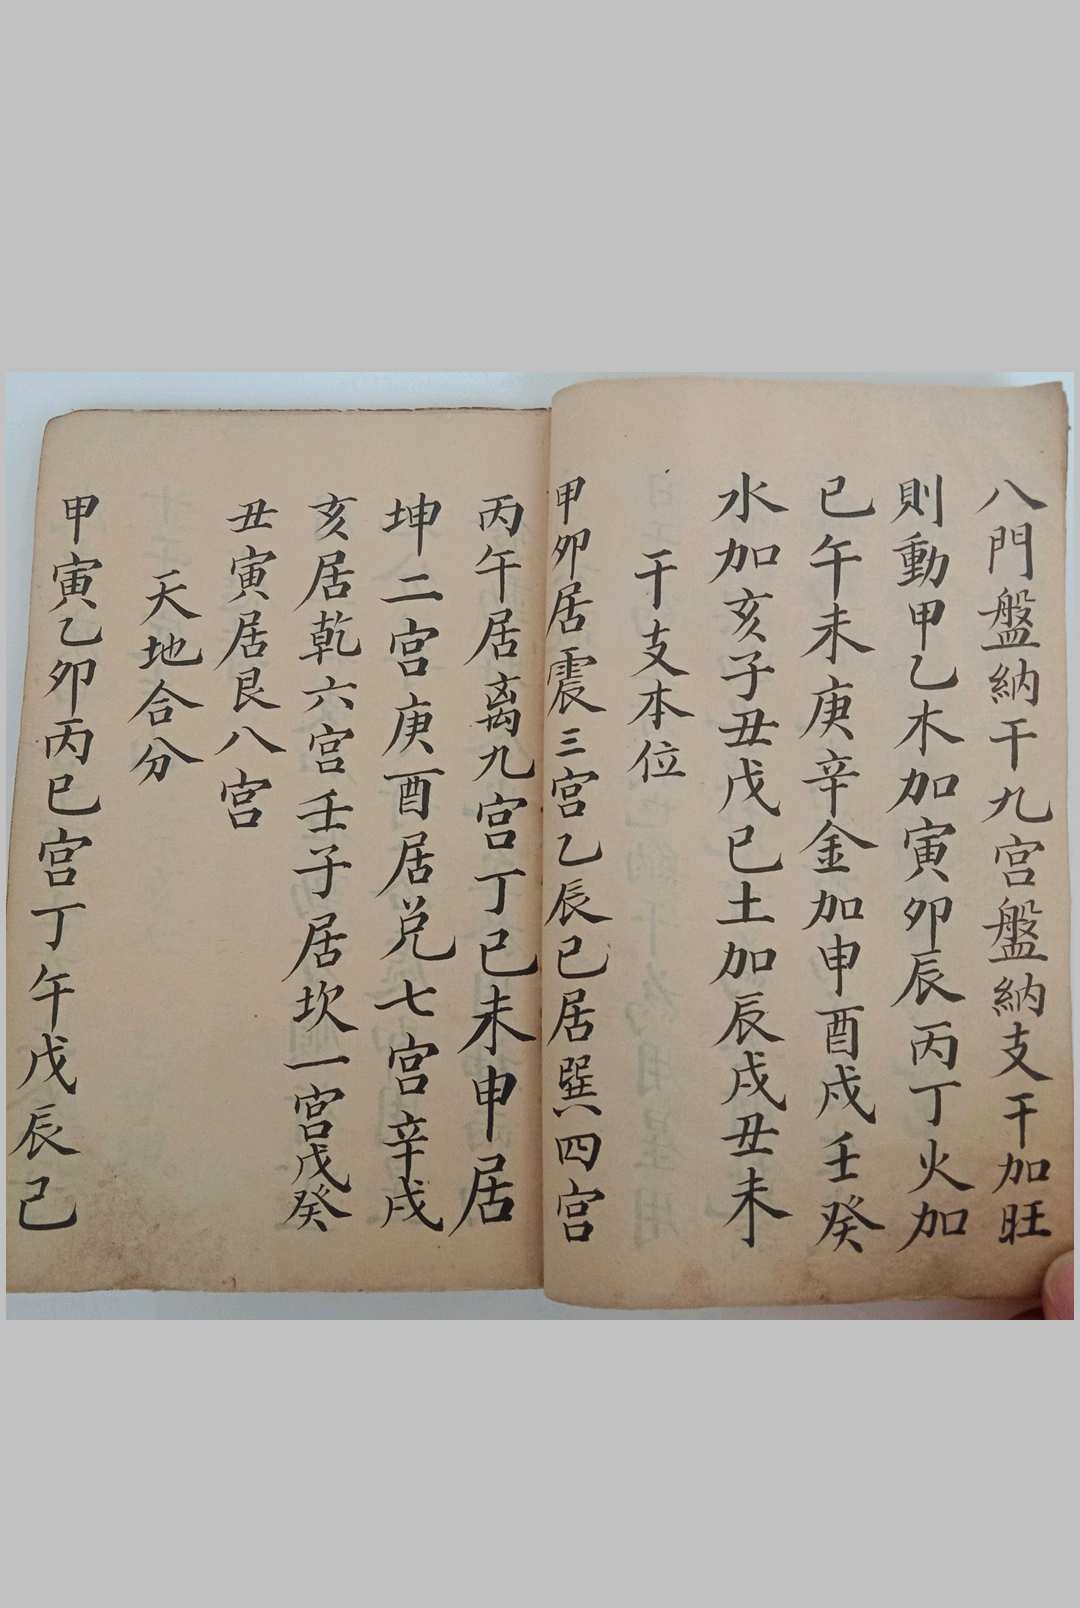 八門盤納干九宮盤納支干加旺
則動甲乙木加寅卯辰丙丁火加
巳午未庚辛金加申酉戌壬癸
水加亥子丑戊己土加辰戌丑未
干支本位
甲卯居震三宮乙辰巳居巽四宮
丙午居离九宮丁己未申居
坤二宮庚酉居兌七宮辛戌
亥居乾六宮壬子居坎一宮戊癸
丑寅居艮八宮
天地合分
甲寅乙卯丙巳宮丁午戊辰己